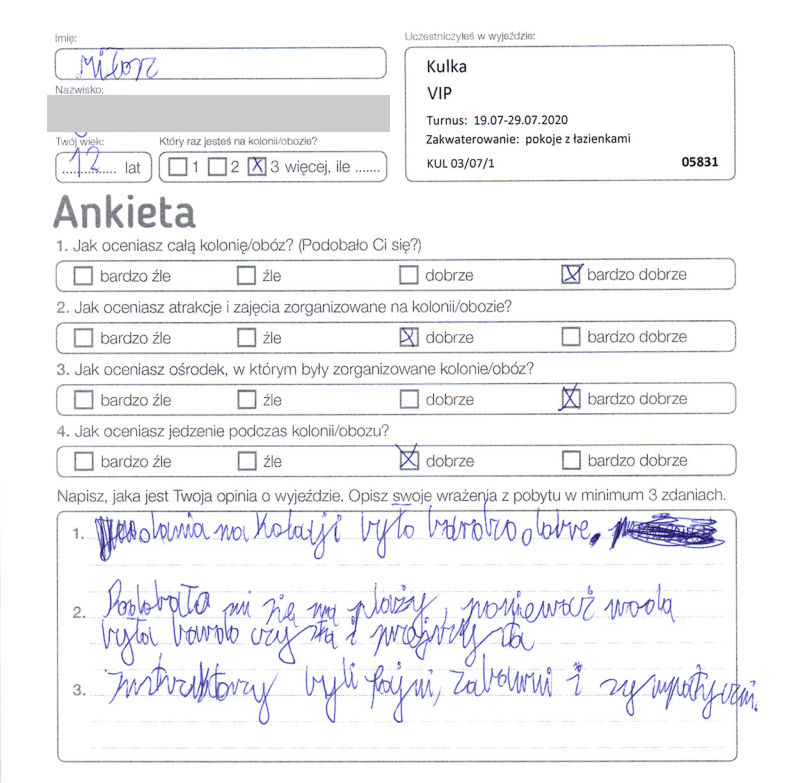 Imię:
Miłosz
Nazwisko:
Twój wiek:
12 lat
Który raz jesteś na kolonii/obozie?
1 2 3 więcej, ile .......
Uczestniczyłeś w wyjeździe:
Kulka
VIP
Turnus: 19.07-29.07.2020
Zakwaterowanie: pokoje z łazienkami
KUL 03/07/1 05831
Ankieta
1. Jak oceniasz całą kolonię/obóz? (Podobało Ci się?)
bardzo źle źle dobrze bardzo dobrze
2. Jak oceniasz atrakcje i zajęcia zorganizowane na kolonii/obozie?
bardzo źle źle dobrze bardzo dobrze
3. Jak oceniasz ośrodek, w którym były zorganizowane kolonie/obóz?
bardzo źle źle dobrze bardzo dobrze
4. Jak oceniasz jedzenie podczas kolonii/obozu?
bardzo źle źle dobrze bardzo dobrze
Napisz, jaka jest Twoja opinia o wyjeździe. Opisz swoje wrażenia z pobytu w minimum 3 zdaniach.
1. na było bardzo dobre.
2. Podobało mi się na plaży, ponieważ woda
była bardo czysta i przejrzysta
3. Instruktorzy byli fajni, zabawni i sympatyczni.